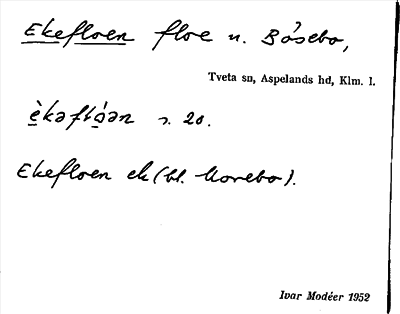 Ekefloen floe n. Båsebo,
Tveta sn, Aspelands hd, Klm. l.
èkəflóən s. 20.
Ekefloen ek (bl. Morebo).
Ivar Modéer 1952